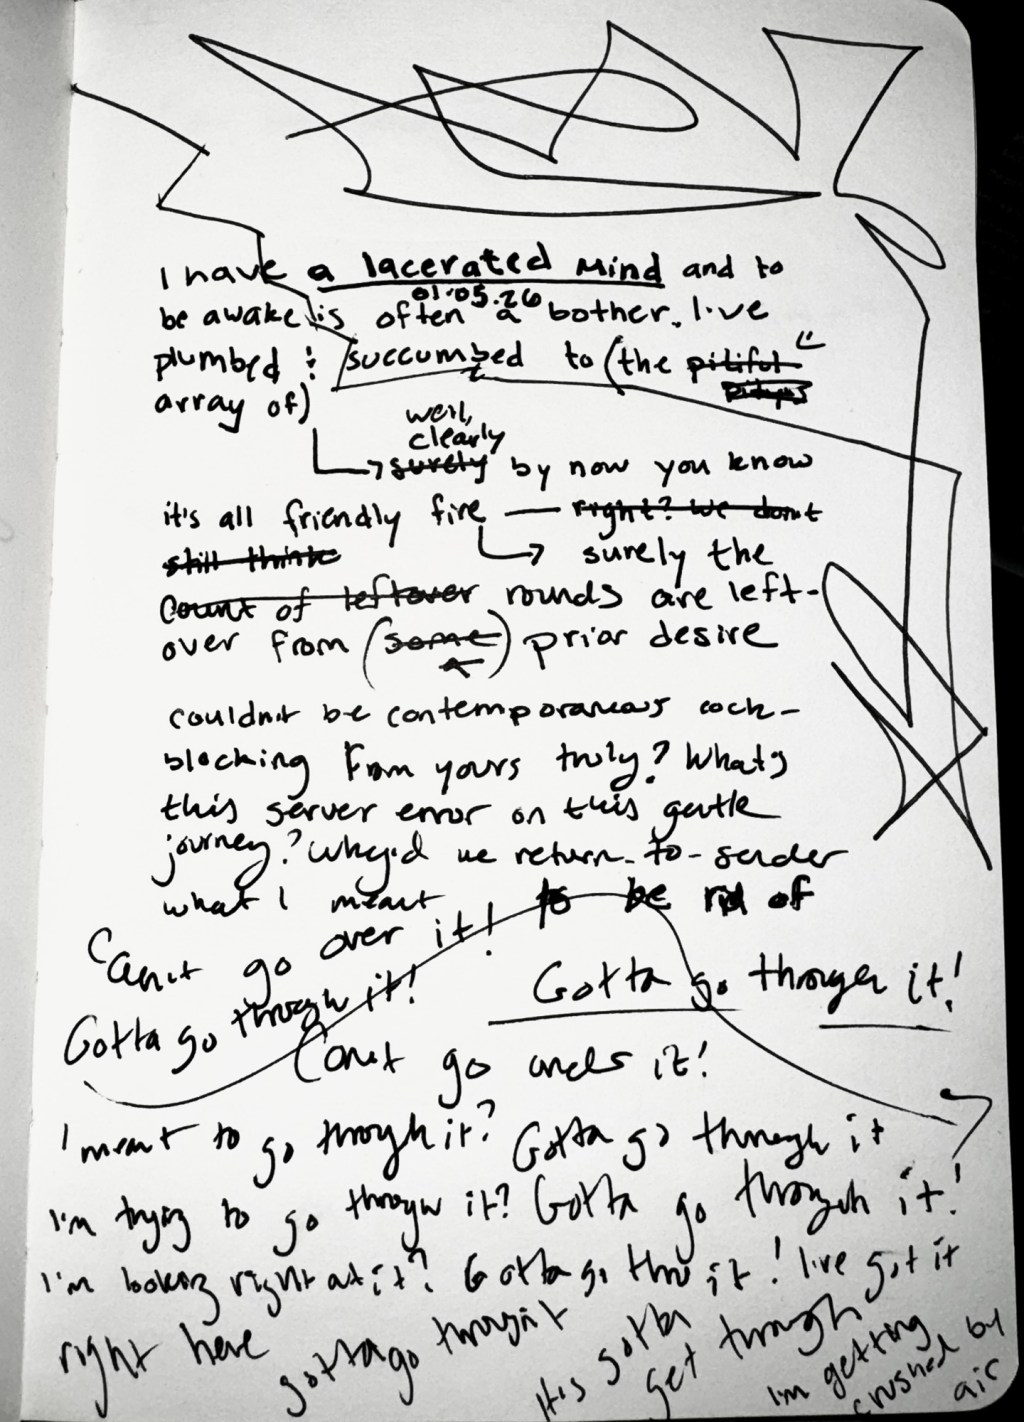 I have a lacerated mind and to
01.05.26
be awake is often a bother. I've
plumbed & succumbed to (the pitiful
array of)
well,
clearly
surely by now you know
it's all friendly fire — right? we don't
still think surely the
count of leftover rounds are left-
over from (some) prior desire
couldn't be contemporaneous cock-
blocking from yours truly? What's
this server error on this gentle
journey? Why'd we return-to-sender
what I meant to be rid of
Can't go over it!
Gotta go through it! Gotta go through it!
Can't go under it!
I meant to go through it? Gotta go through it
I'm trying to go through it? Gotta go through it!
I'm looking right at it? Gotta go thru it! I've got it
right here gotta go through it
It's gotta
get through
I'm getting
crushed by
air